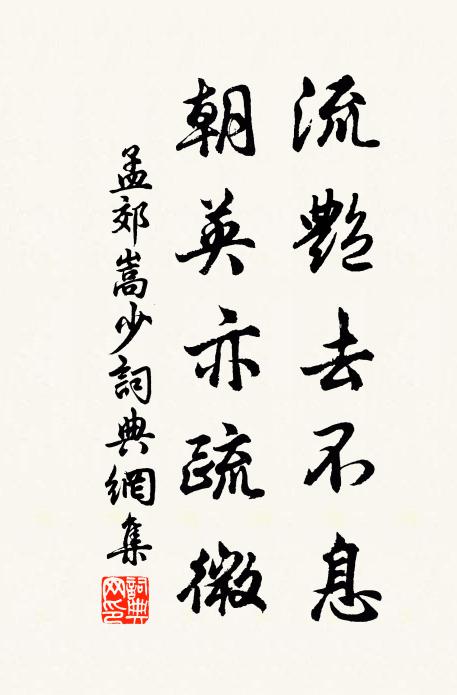 流艷去不息
朝英亦疏微
孟郊嵩少詞典網集
詞典網印